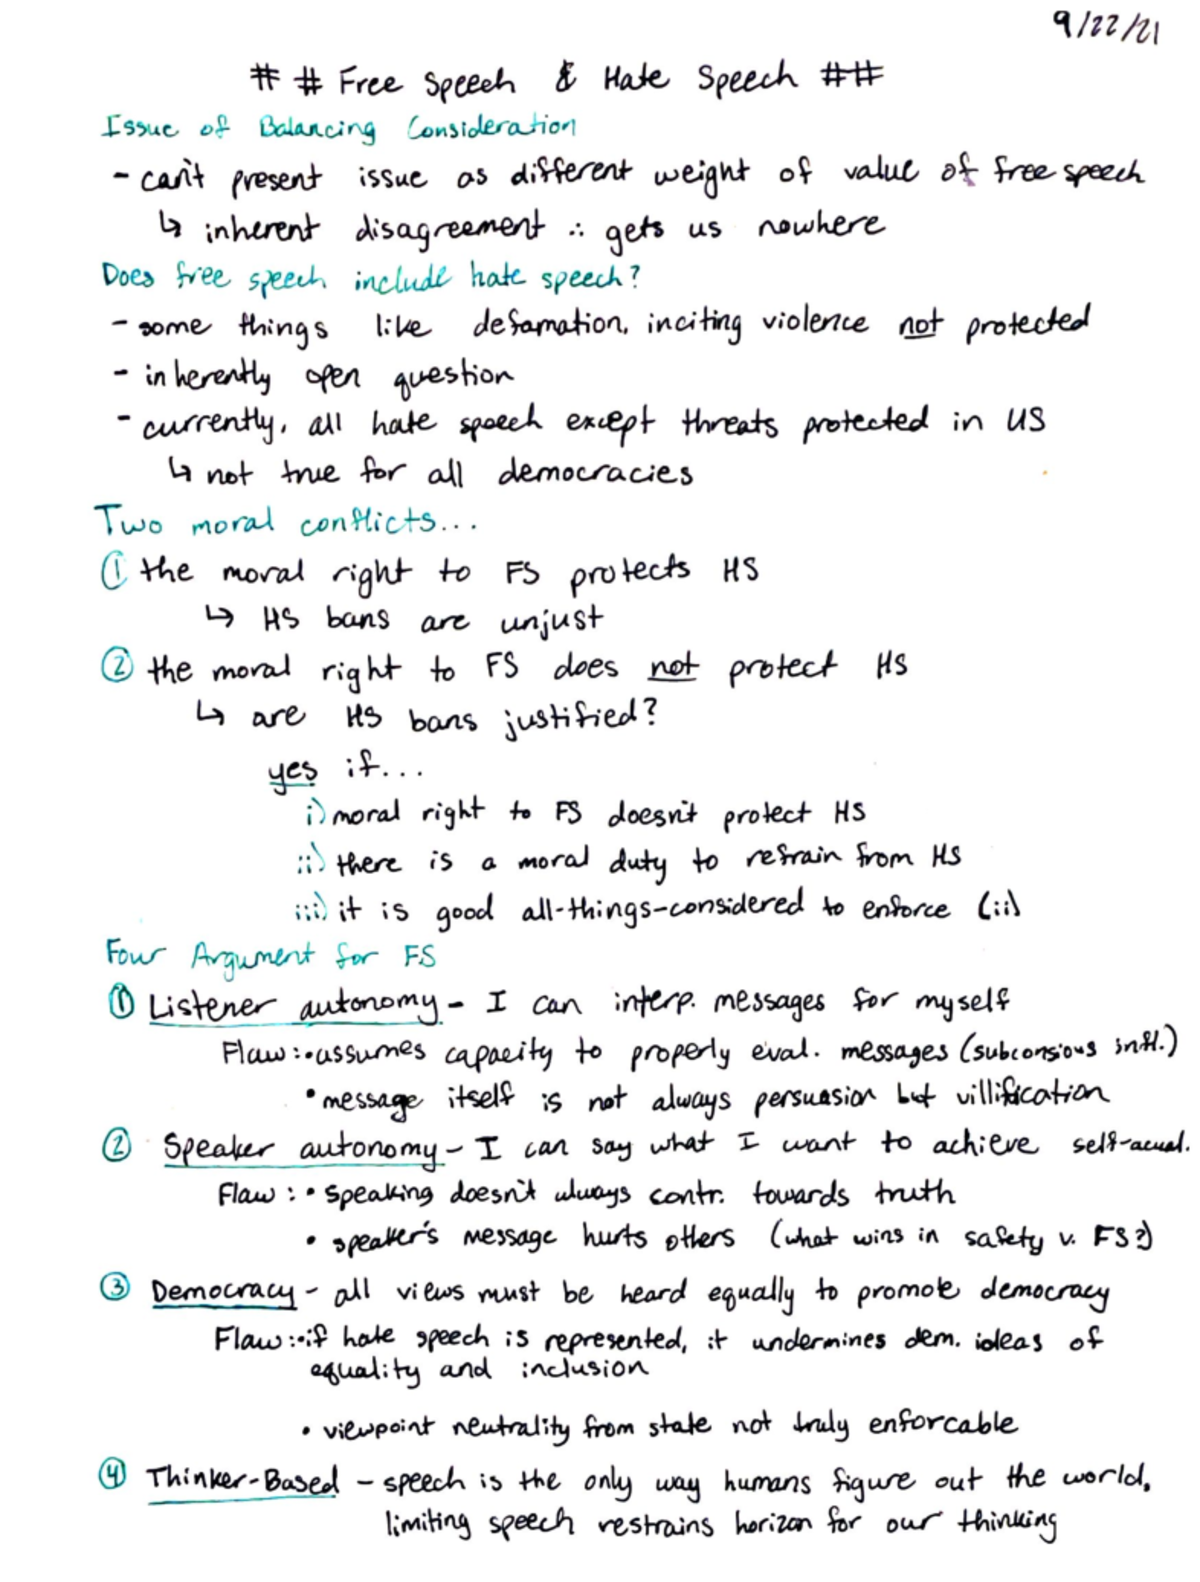 9/22/21
# # Free Speech & Hate Speech ##
Issue of Balancing Consideration
- can't present issue as different weight of value of free speech
↳ inherent disagreement ∴ gets us nowhere
Does free speech include hate speech?
- some things like defamation, inciting violence not protected
- inherently open question
- currently, all hate speech except threats protected in US
↳ not true for all democracies
Two moral conflicts...
① the moral right to FS protects HS
↳ HS bans are unjust
② the moral right to FS does not protect HS
↳ are HS bans justified?
yes if...
i) moral right to FS doesn't protect HS
ii) there is a moral duty to refrain from HS
iii) it is good all-things-considered to enforce (ii)
Four Argument for FS
① Listener autonomy - I can interp. messages for myself
Flaw: • assumes capacity to properly eval. messages (subconsious infl.)
• message itself is not always persuasion but villification
② Speaker autonomy - I can say what I want to achieve self-acual.
Flaw: • speaking doesn't always contr. towards truth
• speaker's message hurts others (what wins in safety v. FS?)
③ Democracy - all views must be heard equally to promote democracy
Flaw: • if hate speech is represented, it undermines dem. ideas of
equality and inclusion
• viewpoint neutrality from state not truly enforcable
④ Thinker-Based - speech is the only way humans figure out the world,
limiting speech restrains horizon for our thinking